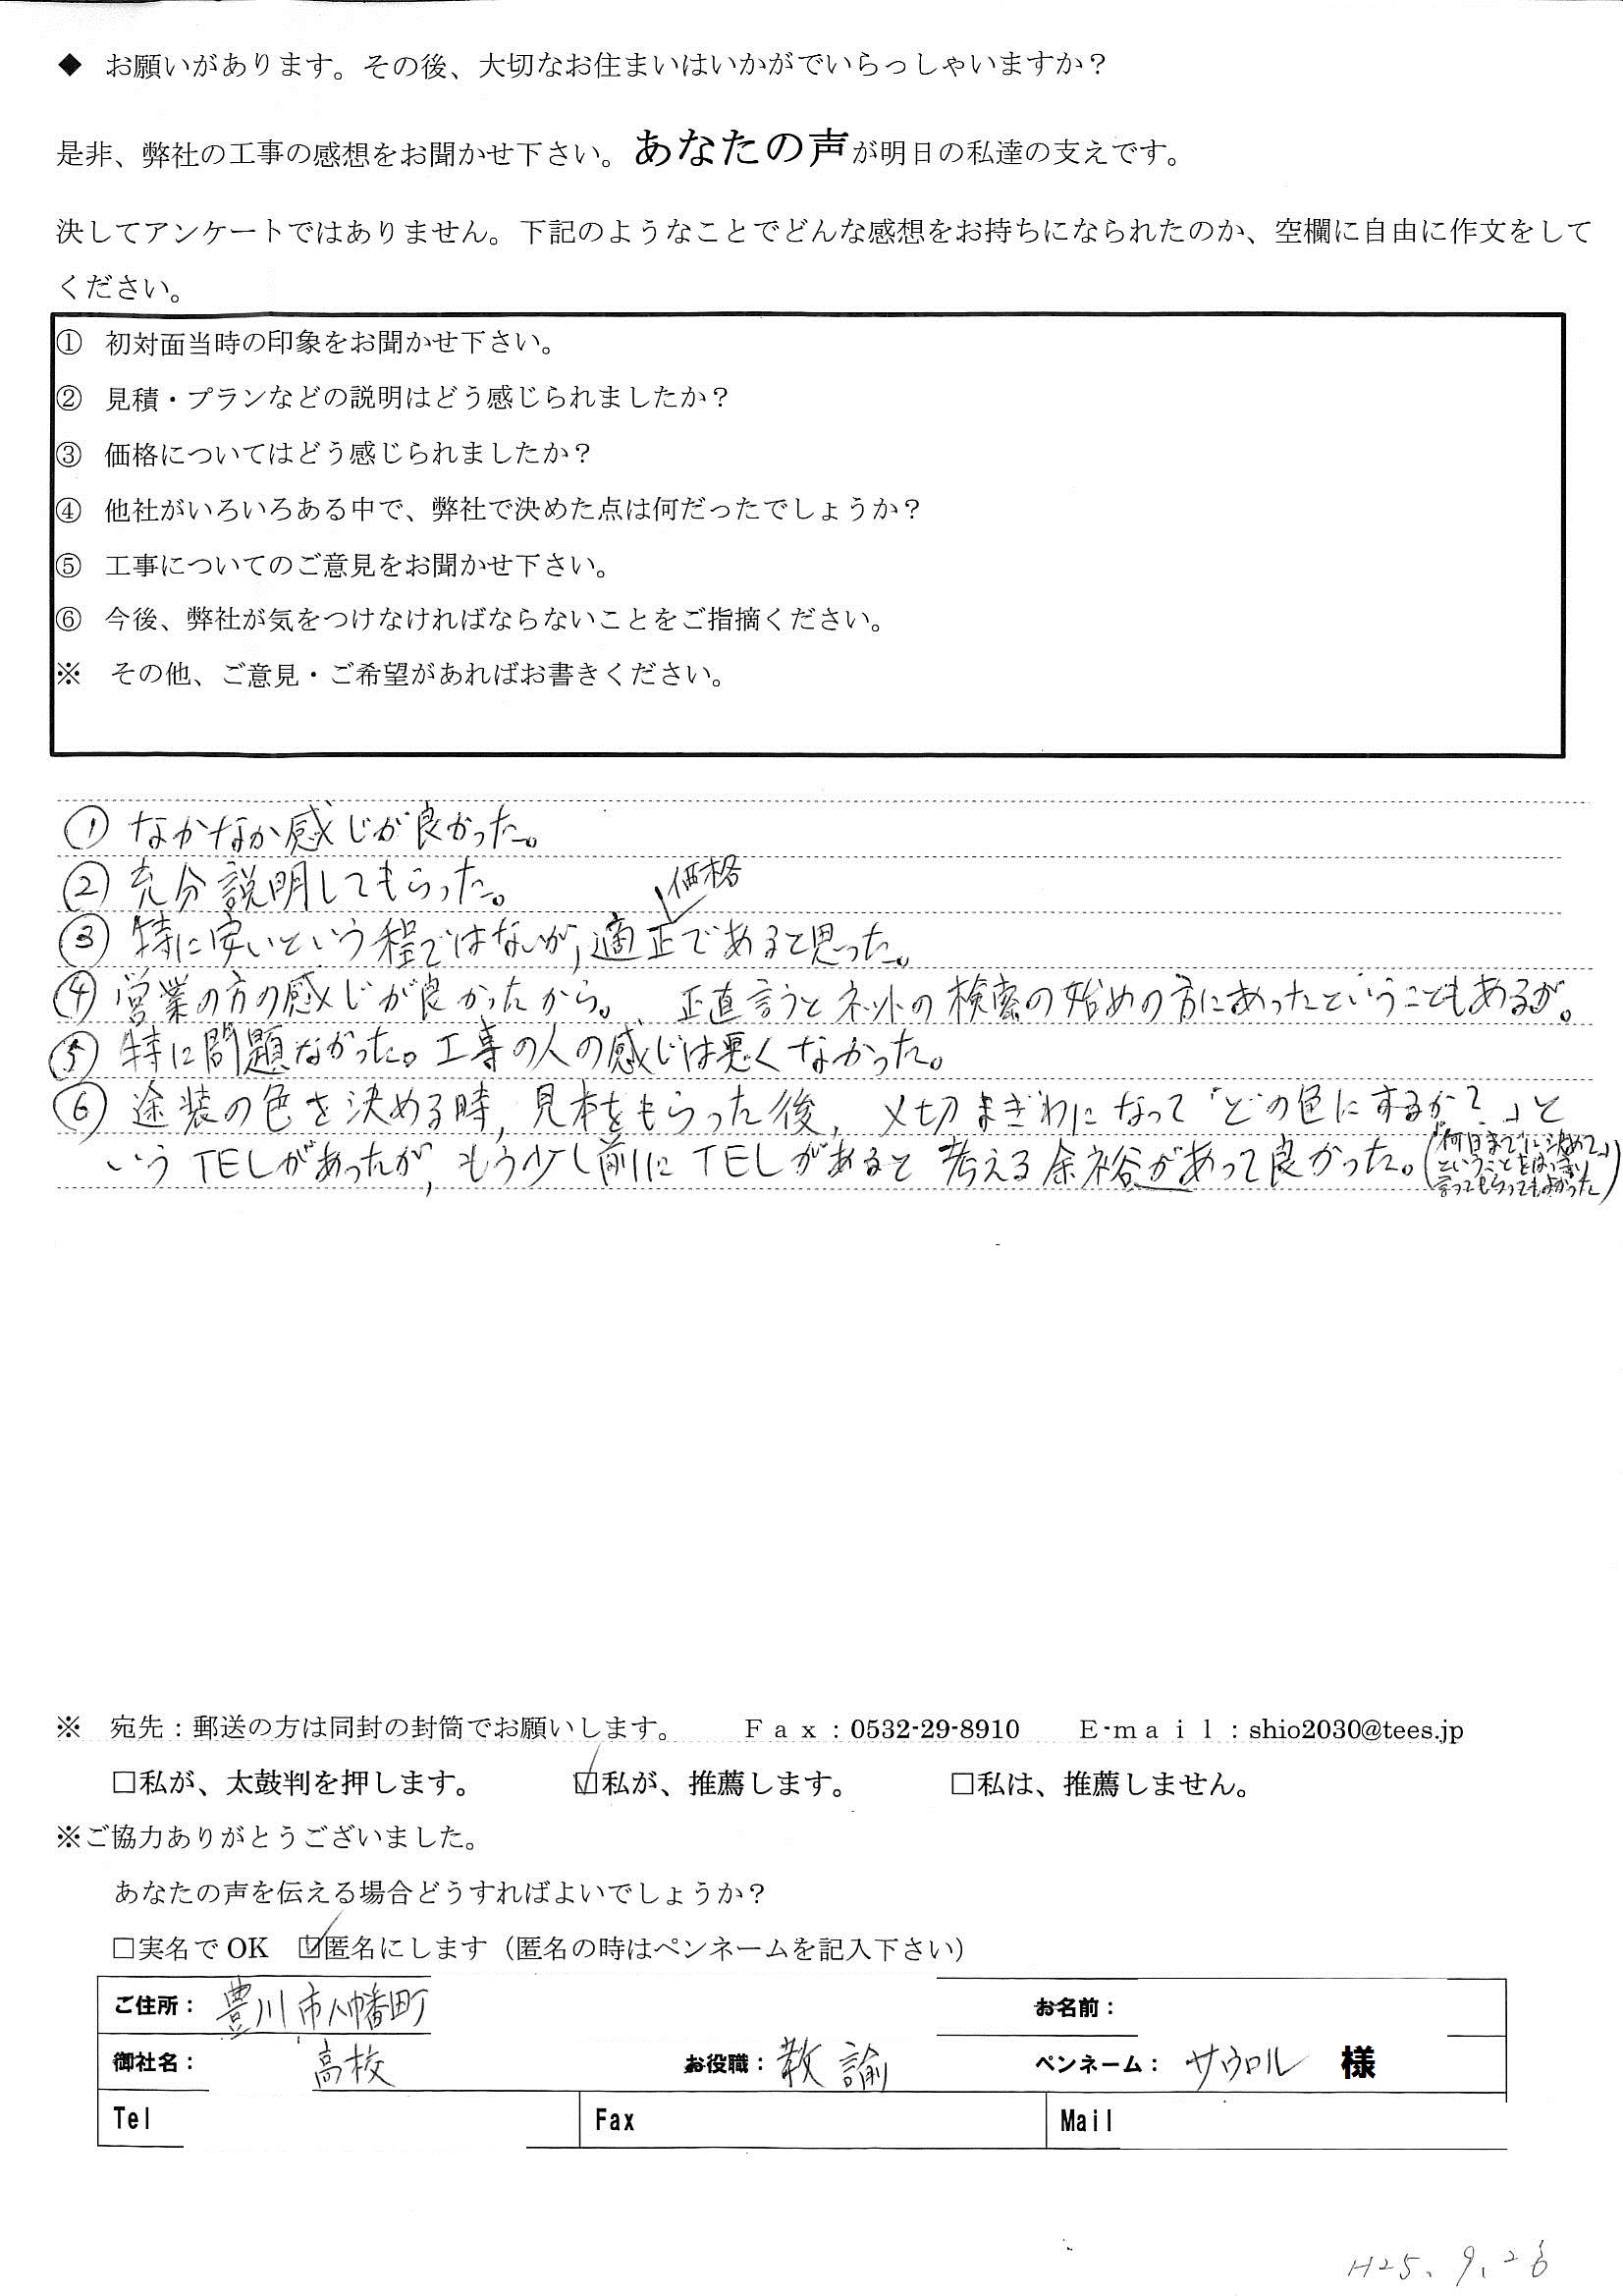 ◆ お願いがあります。その後、大切なお住まいはいかがでいらっしゃいますか？
是非、弊社の工事の感想をお聞かせ下さい。あなたの声が明日の私達の支えです。
決してアンケートではありません。下記のようなことでどんな感想をお持ちになられたのか、空欄に自由に作文をして
ください。
① 初対面当時の印象をお聞かせ下さい。
② 見積・プランなどの説明はどう感じられましたか？
③ 価格についてはどう感じられましたか？
④ 他社がいろいろある中で、弊社で決めた点は何だったでしょうか？
⑤ 工事についてのご意見をお聞かせ下さい。
⑥ 今後、弊社が気をつけなければならないことをご指摘ください。
※ その他、ご意見・ご希望があればお書きください。
① なかなか感じが良かった。
② 充分説明してもらった。
価格
③ 特に安いという程ではないが，適正であると思った。
④ 営業の方の感じが良かったから。、正直言うとネットの検索の始めの方にあったということもあるが。
⑤ 特に問題なかった。工事の人の感じは悪くなかった。
⑥ 塗装の色を決める時，見本をもらった後，〆切まぎわになって「どの色にするか？」と
いうTELがあったが，もう少し前にTELがあると考える余裕があって良かった。
(「何日までに決めて」
ということをはっきり
言ってもらってもよかった)
※ 宛先：郵送の方は同封の封筒でお願いします。 Ｆａｘ：0532-29-8910 Ｅ-ｍａｉｌ：shio2030@tees.jp
□私が、太鼓判を押します。 ☑私が、推薦します。 □私は、推薦しません。
※ご協力ありがとうございました。
あなたの声を伝える場合どうすればよいでしょうか？
□実名でOK ☑匿名にします（匿名の時はペンネームを記入下さい）
ご住所： 豊川市八幡町 お名前：
御社名： 高校 お役職：教諭 ペンネーム： サウロル 様
Tel Fax Mail
H25、9、26